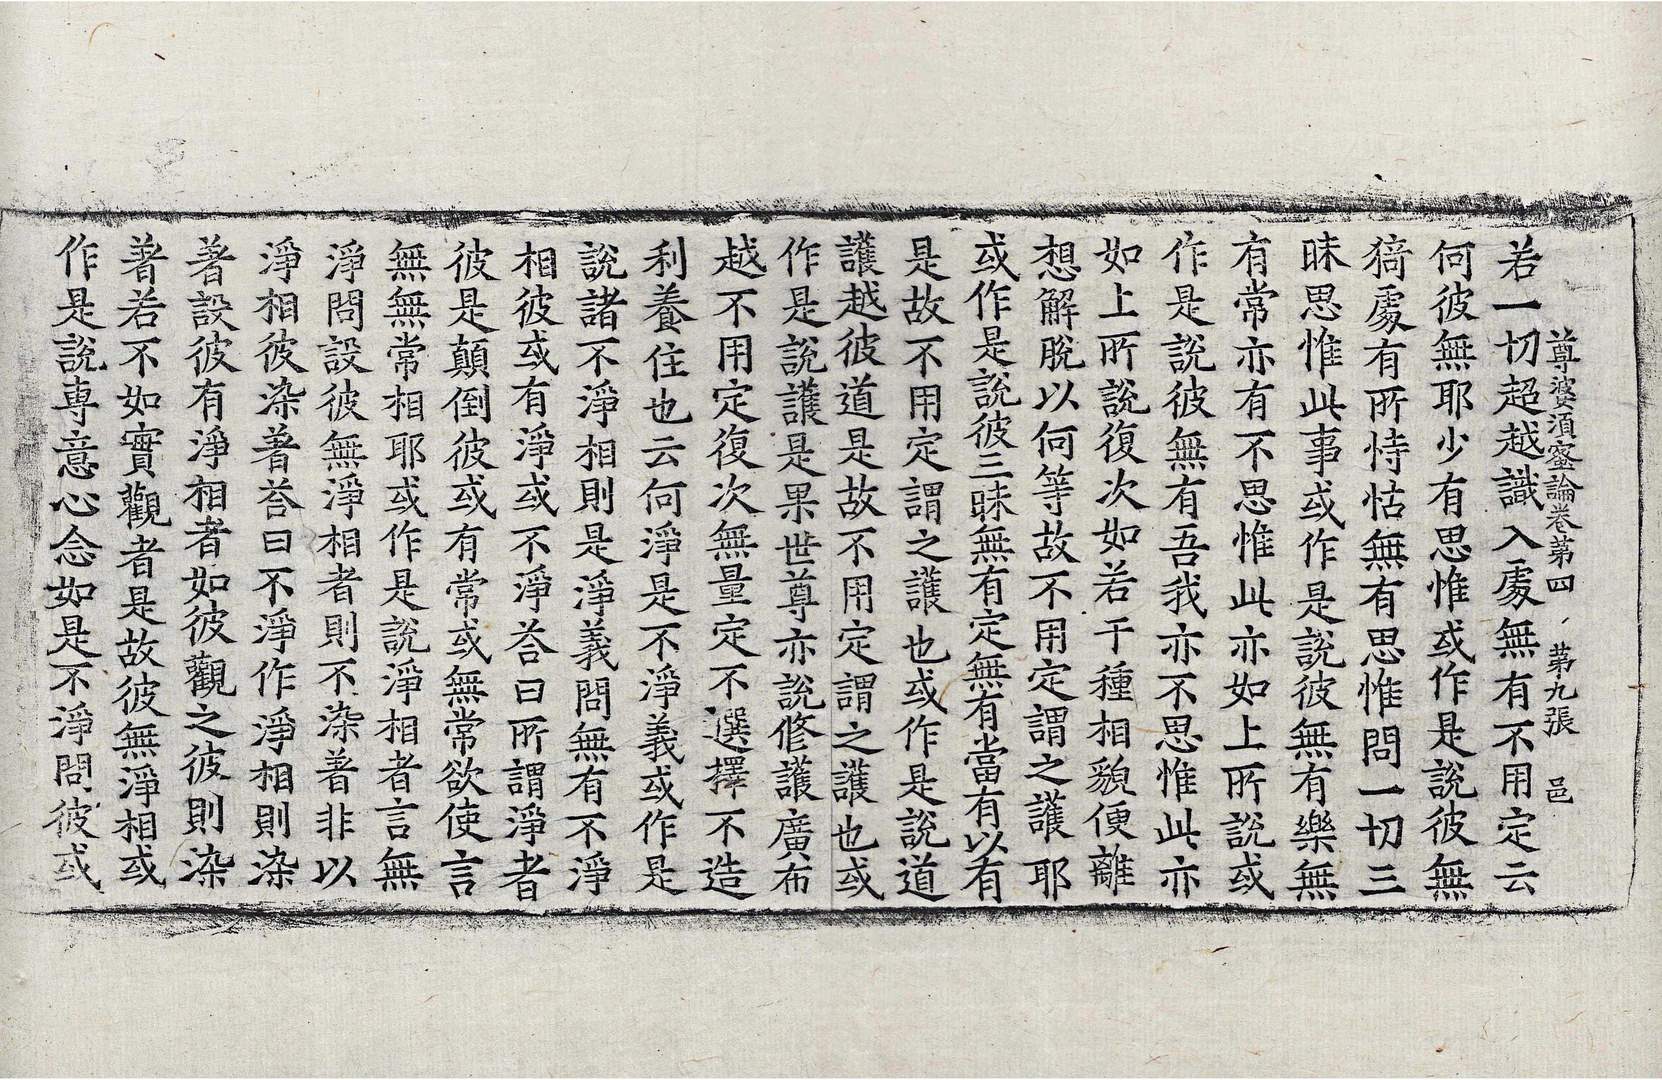 尊婆須蜜論卷第四 第九張 邑
若一切超越識入處無有不用定云
何彼無耶少有思惟或作是說彼無
猗處有所恃怙無有思惟問一切三
昧思惟此事或作是說彼無有樂無
有常亦有不思惟此亦如上所說或
作是說彼無有吾我亦不思惟此亦
如上所說復次如若干種相貌便離
想解脫以何等故不用定謂之護耶
或作是說彼三昧無有定無有當有以有
是故不用定謂之護也或作是說道
護越彼道是故不用定謂之護也或
作是說護是果世尊亦說修護廣布
越不用定復次無量定不選擇不造
利養住也云何淨是不淨義或作是
說諸不淨相則是淨義問無有不淨
相彼或有淨或不淨荅曰所謂淨者
彼是顛倒彼或有常或無常欲使言
無無常相耶或作是說淨相者言無
淨問設彼無淨相者則不染著非以
淨相彼染著荅曰不淨作淨相則染
著設彼有淨相者如彼觀之彼則染
著若不如實觀者是故彼無淨相或
作是說專意心念如是不淨問彼或